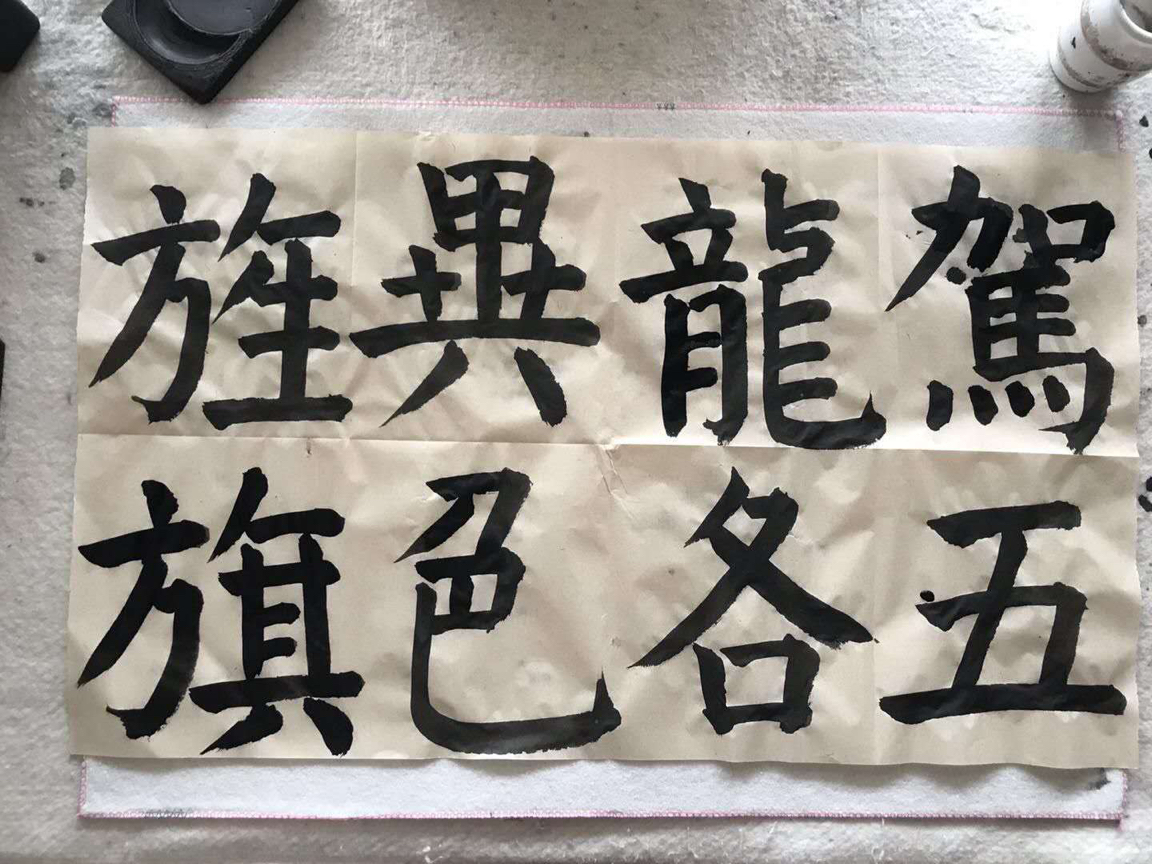 駕五
龍各
異色
旌旗